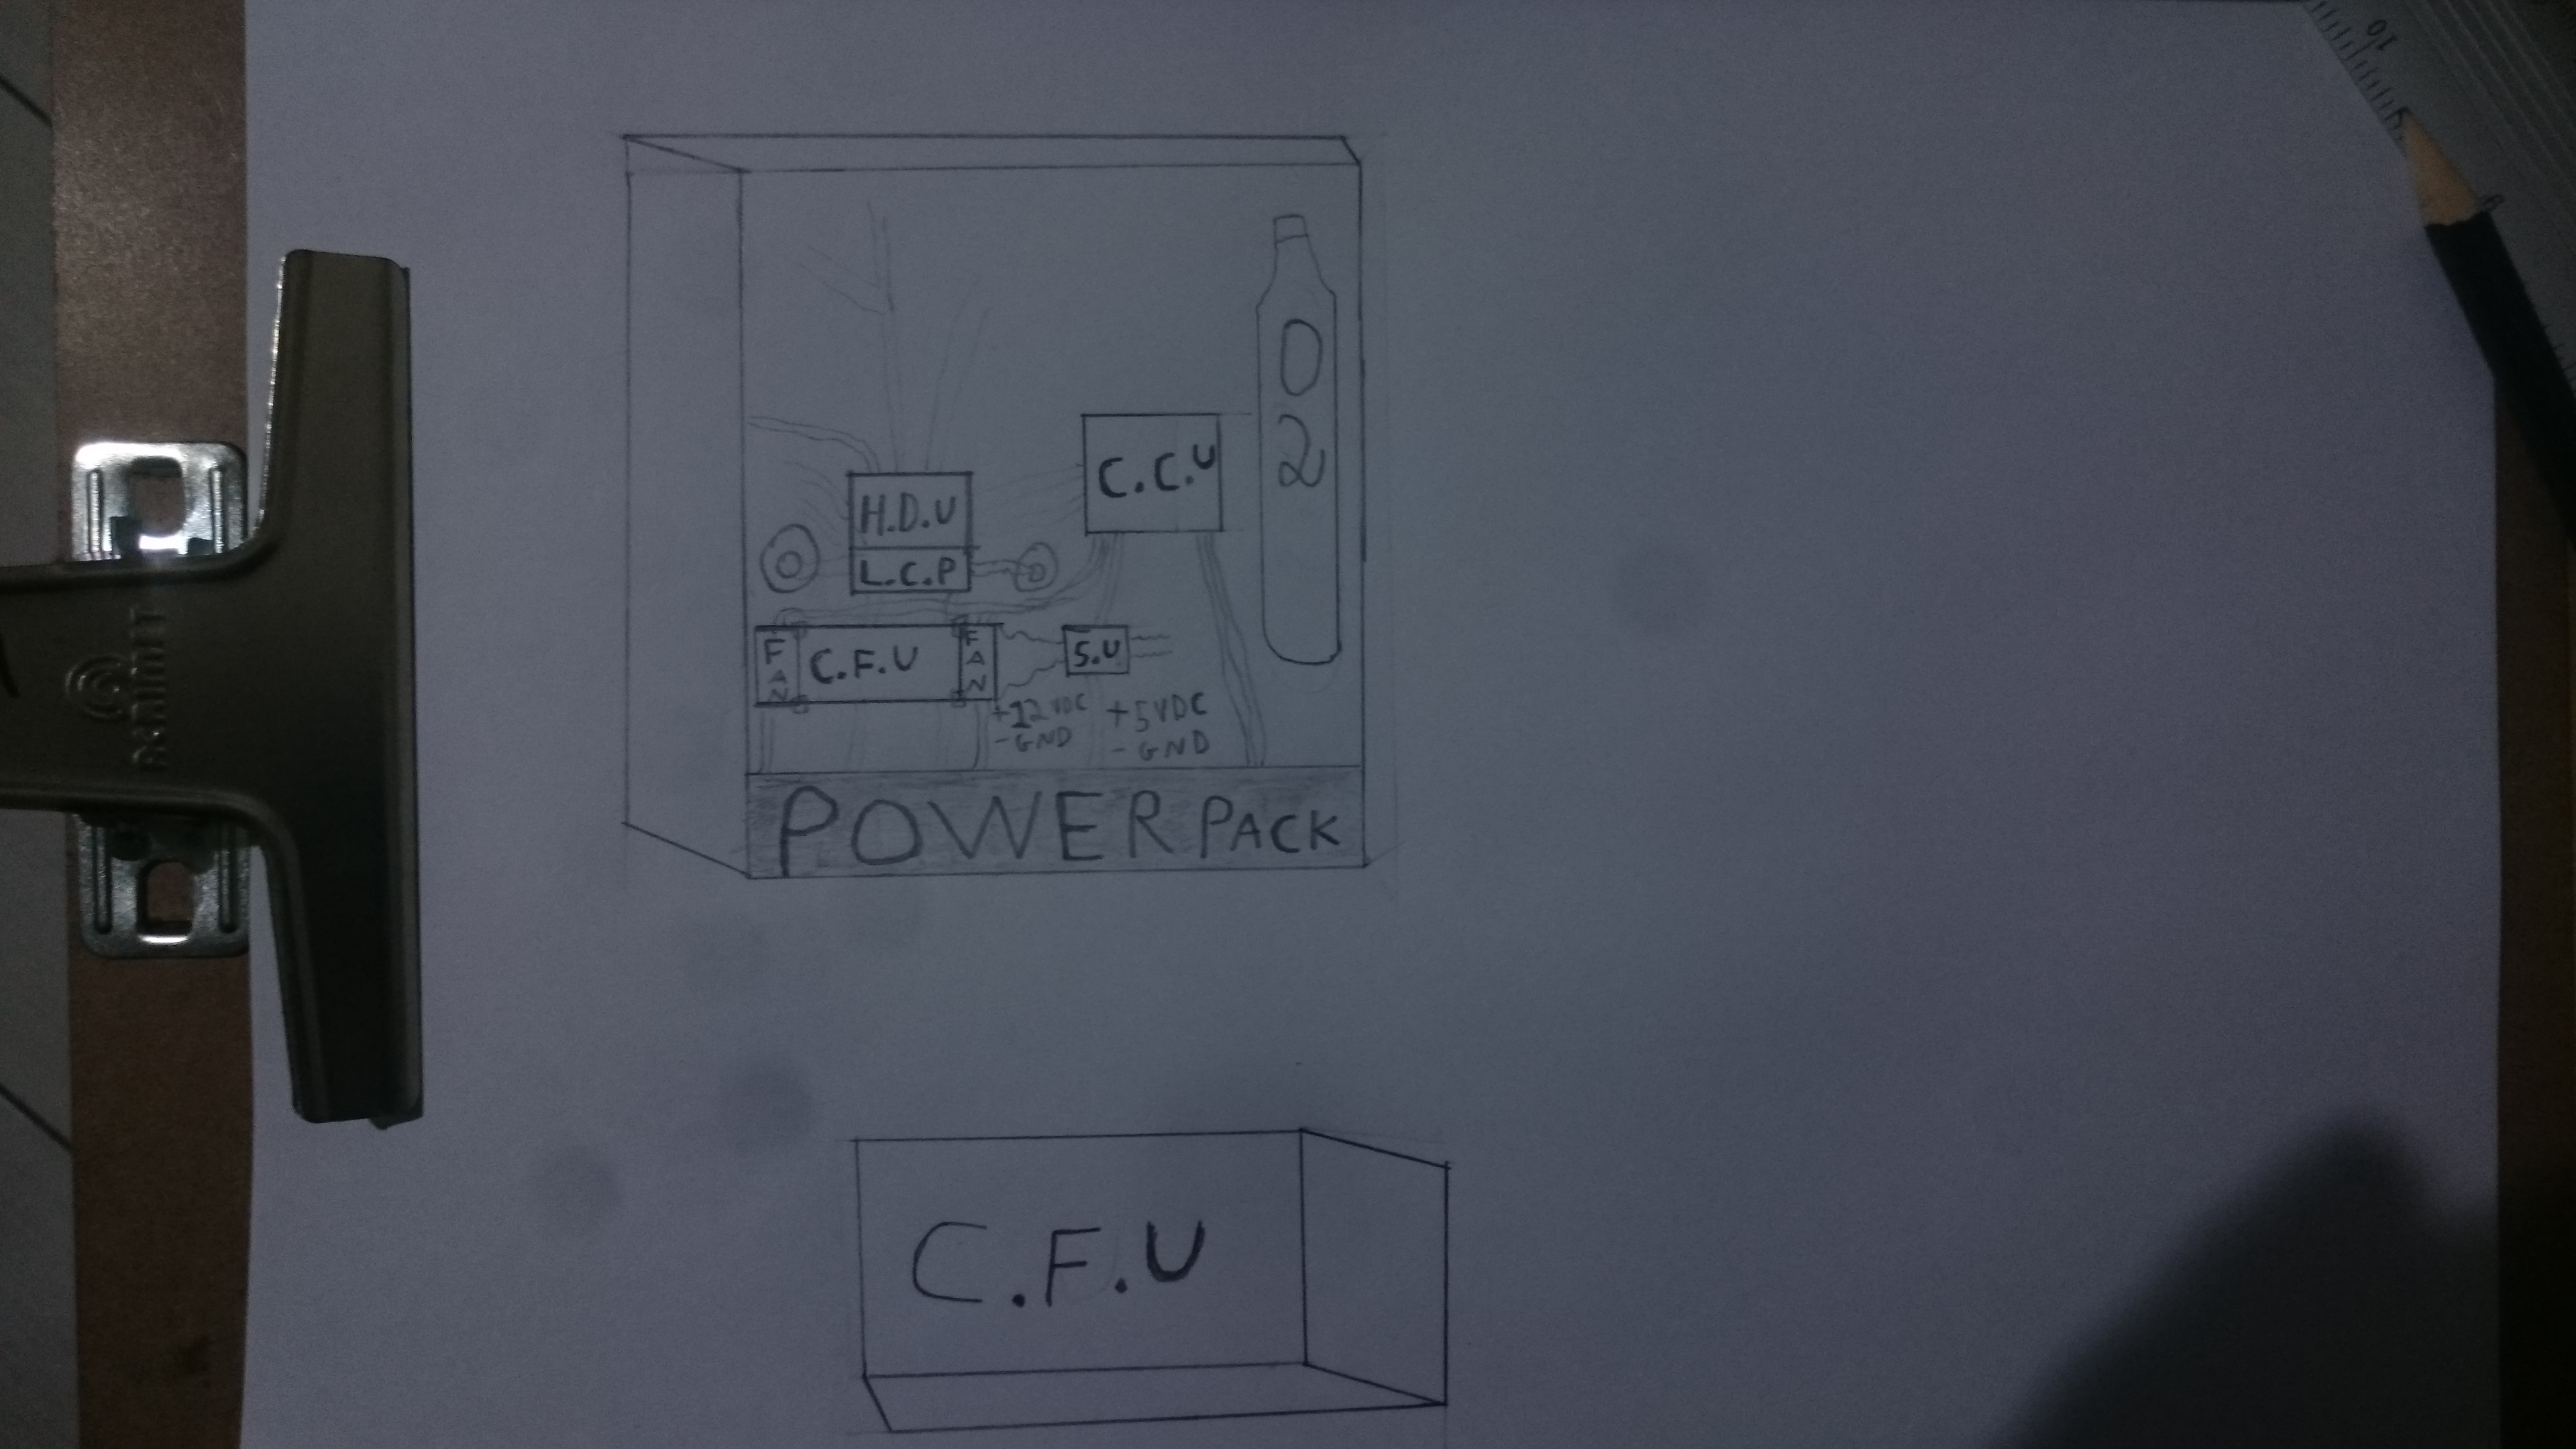 O
2
C.C.U
H.D.U
L.C.P
FAN
C.F.U
FAN
S.U
+12 VDC
-GND
+5VDC
-GND
POWER PACK
C.F.U
10